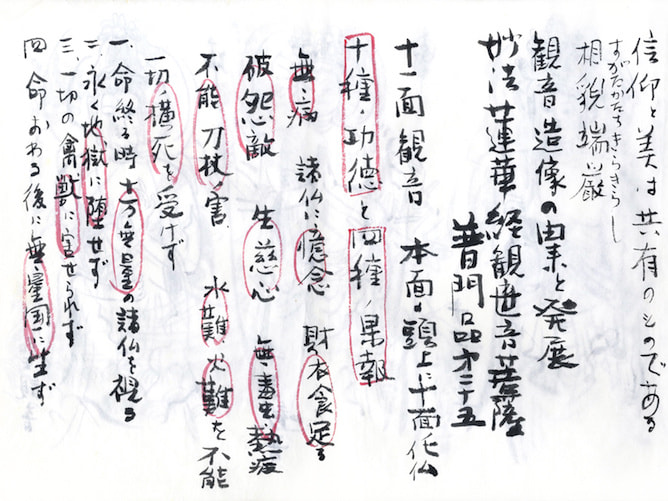 信仰と美は共有のものである
すがたかたちきらきらし
相貌端厳
観音造像の由来と発展
妙法蓮華経観世音菩薩
普門品第二十五
十一面観音 本面ノ頭上に十面化仏
十種ノ功徳と四種ノ果報
無病 諸仏に憶念 財衣食足る
破怨敵 生慈心 無毒虫熱疫
不能刀杖ノ害 水難火難を不能
一切横死を受けず
一、命終る時十方無量の諸仏を視る
二、永く地獄に堕せず
三、一切の禽獣に害せられず
四 命おわる後に無量国に生ず